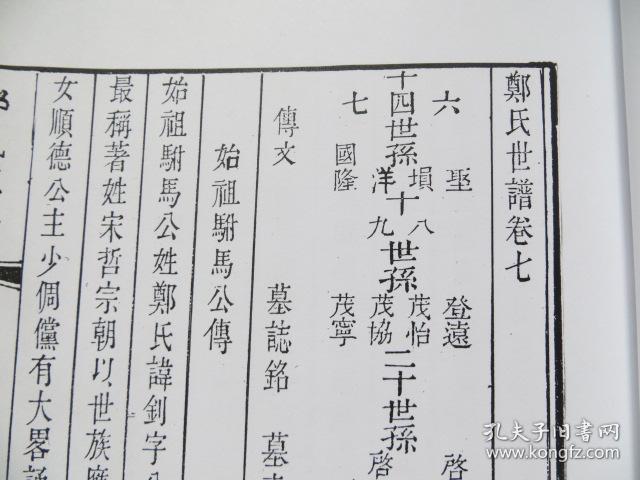 鄭氏世譜卷七
六 登遠 啓
塤八 茂怡
十四世孫 十 世孫 二十世孫
洋九 茂協 啓
七 國隆 茂寧
傳文 墓誌銘 墓
始祖駙馬公傳
始祖駙馬公姓鄭氏諱釗字
最稱著姓宋哲宗朝以世族應
女順德公主少倜儻有大畧
孔夫子旧书网